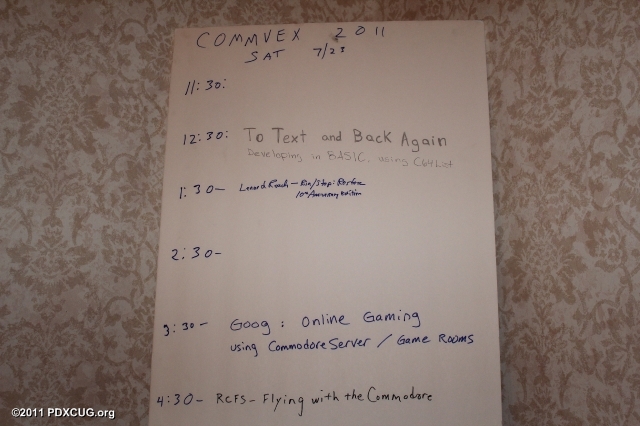 COMMVEX 2011
SAT 7/23
11:30:
12:30: To Text and Back Again
Developing in BASIC, using C64List
1:30- Lenard Roach - Run/Stop: Restore
10th Anniversary Edition
2:30-
3:30- Goog: Online Gaming
using CommodoreServer / Game Rooms
4:30- RCFS- Flying with the Commodore
©2011 PDXCUG.org